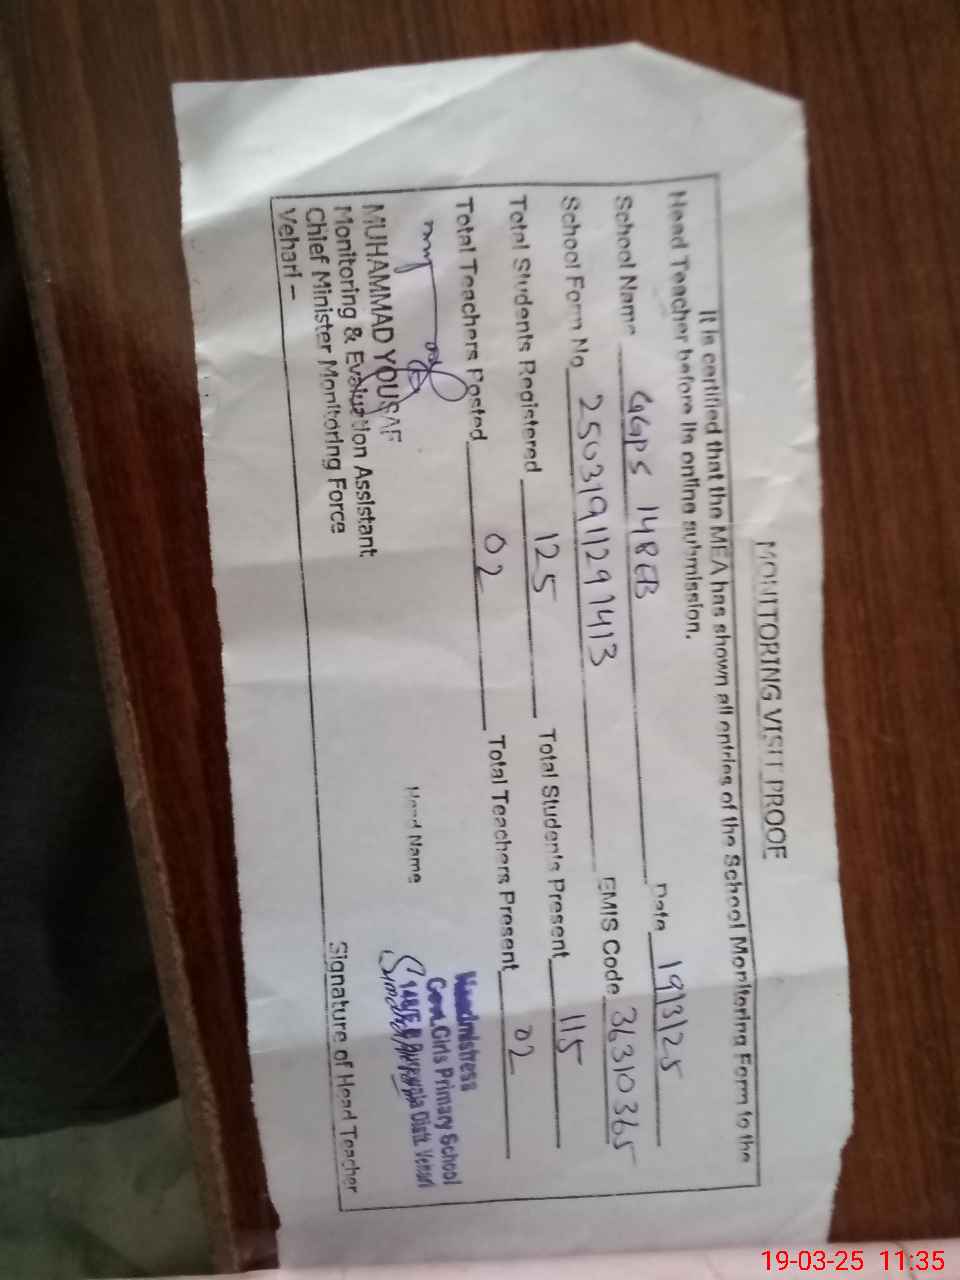 MONITORING VISIT PROOF
It is certified that the MEA has shown all entries of the School Monitoring Form to the
Head Teacher before its online submission.
School Name GGPS 148EB Date 19/3/25
School Form No 25031911291413 EMIS Code 36310365
Total Students Registered 125 Total Students Present 115
Total Teachers Posted 02 Total Teachers Present 02
Head Name
Headmistress
Govt. Girls Primary School
148/E.B Burewala Distt. Vehari
MUHAMMAD YOUSAF
Monitoring & Evaluation Assistant
Chief Minister Monitoring Force
Vehari –
Signature of Head Teacher
19-03-25 11:35